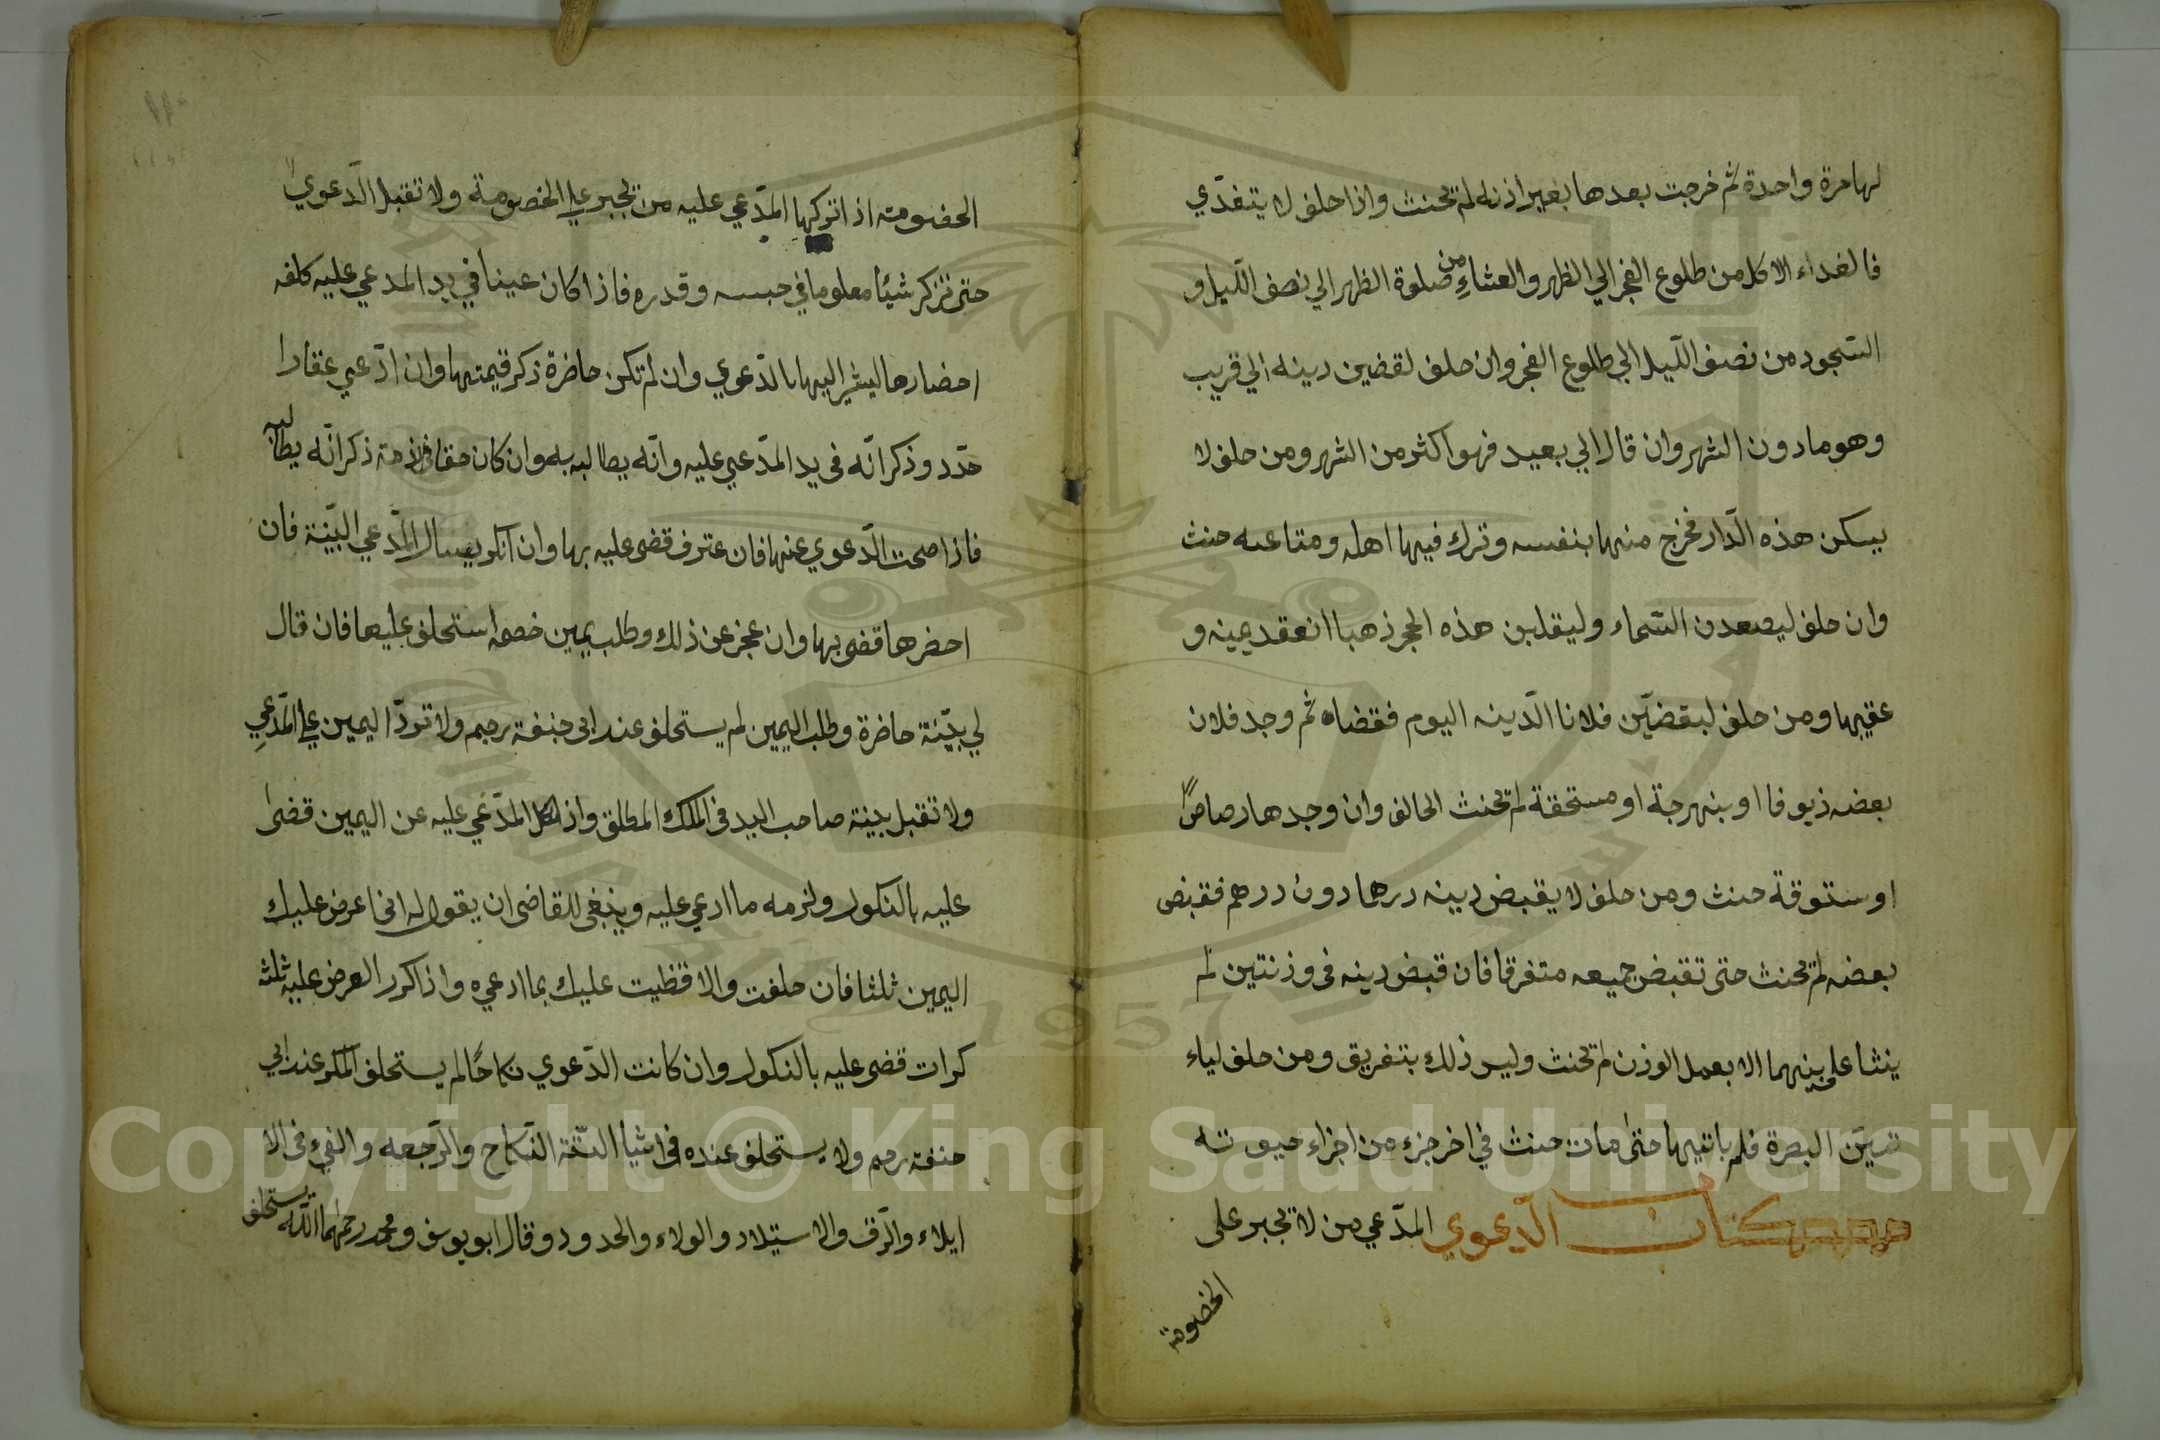 لها مرة واحدة ثم خرجت بعدها بغير اذنه لم تحنث واذا حلف لا يتغدّي
فالغداء الاكل من طلوع الفجر الي الظهر والعشاءِ من صلوة الظهر الي نصف الّليل و
السّحود من نصف اللّيل الي طلوع الفجر وان حلف لقضين دينه الي قريب
وهو مادون الشهر وان قال الي بعيد فهو اكثر من الشهر ومن حلف لا
يسكن هذه الّدار فخرج منها بنفسه وترك فيها اهله ومتاعه حنث
وان حلف ليصعدن السّماء وليقلبن هذه الحجر ذهبا انعقد يمينه و
عقيبها ومن حلف ليقضيّن فلانا الّدينه اليوم فقضاه ثم وجد فلان
بعضه زيوفا او بنهرجة او مستحقة لم تحنث الحالف وان وجدها رصاصًا
او ستوقة حنث ومن حلف لا يقبض دينه درهما دون درهم فقبض
بعضه لم تحنث حتى تقبض جميعه متفرقا فان قبض دينه فى وزنتين لم
ينثاعلى بينهما الا بعمل الوزن لم تحنث وليس ذلك بتفريق ومن حلف لياء
تيّن البصرة فلم ياتيها حتى مات حنث في اخر جزء من اجزاء حيوته
كتاب الّدعوي المدّعي من لا تجبر على
الخصومة
الخصومته اذا تركها المدّعي عليه من تجبر علي الخصومة ولا تقبل الّدعوي
حتى تزكر شيئا معلوما في جبسه وقدره فاذا كان عينا في يد المدعي عليه كلفه
احضارها ليشير اليها بالدّعوي وان لم تكن حاضرة ذكر قيمتها وان ادّعي عقارا
حدّد وذكر انّه فى يد المدّعي عليه وانّه يطالبه به وان كان حقا فى ذمته ذكر انّه يطالبه
فاذا صحت الدّعوي عنها فان عترف قضى عليه بها وان انكر يسال المّدعي البيّنة فان
احضرها قضى بها وان عجز عن ذلك وطلب يمين خصمه استحلف عليها فان قال
لي بيّنة حاضرة وطلب اليمين لم يستحلف عند ابى حنفة رحم ولا تردّ اليمين علي المدّعِي
ولا تقبل بينة صاحب اليد فى الملك المطلق واذا نكل المدّعي عليه عن اليمين قضى
عليه بالنكول ولزمه ما ادعي عليه وينبغى للقاضى ان يقول له انى اعرض عليك
اليمين ثلثا فان حلفت والا قظيت عليك بما ادعيه واذا كرر العرض عليه ثلث
كرات قضى عليه بالنكول وان كانت الدّعوي نكاحًا لم يستحلف المنكر عند ابي
حنفة رحم ولا يستحلف عنده فى اشيا الستّة النّكاح والرّجعه والفيء فى الا
ايلاء والرّق والاستيلاد والولاء والحدود وقال ابو يوسف ومحمد رحمهما اللّه يستحلف
Copyright © King Saud University
1957